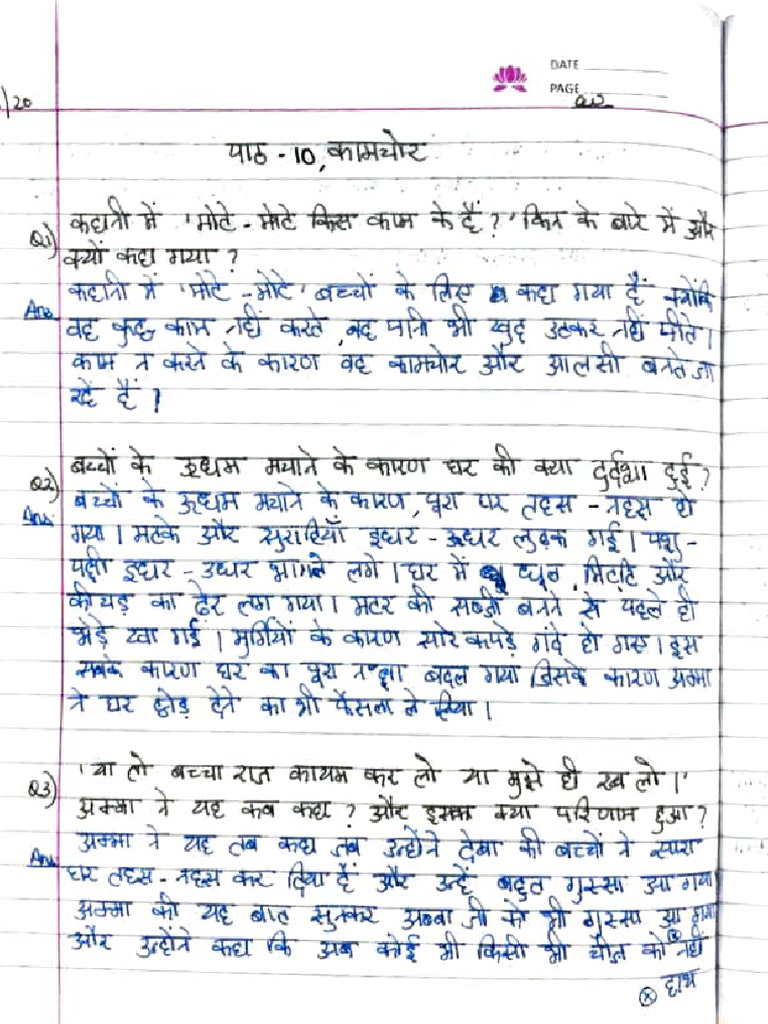 DATE
PAGE
/20
पाठ - 10, कामचोर
Q1) कहानी में 'मोटे-मोटे किस काम के हैं?' किन के बारे में और
क्यों कहा गया ?
Ans कहानी में 'मोटे-मोटे' बच्चों के लिए कहा गया हैं क्योंकि
वह कुछ काम नहीं करते, वह पानि भी खुद उठकर नहीं पीते।
काम न करने के कारण वह कामचोर और आलसी बनते जा
रहे हैं।
Q2) बच्चों के ऊधम मचाने के कारण घर की क्या दुर्दशा हुई?
Ans बच्चों के ऊधम मचाने के कारण, पूरा घर तहस-नहस हो
गया। मटके और सुराहियाँ इधर-ऊधर लुढ़क गई। पशु-
पक्षी इधर-उधर भागने लगे। घर में धूल, मिटटि और
कीचड़ का ढेर लग गया। मटर की सब्ज़ी बनने से पहले ही
भेड़े खा गई। मुर्गियों के कारण सारे कपड़े गंदे हो गए। इस
सबके कारण घर का पूरा नक्शा बदल गया जिसके कारण अम्मा
ने घर छोड़ देने का भी फैसला ले लिया।
Q3) 'या तो बच्चा राज कायम कर लो या मुझे ही रख लो।'
अम्मा ने यह कब कहा ? और इसका क्या परिणाम हुआ?
Ans अम्मा ने यह तब कहा जब उन्होंने देखा की बच्चों ने सारा
घर तहस-नहस कर दिया हैं और उन्हें बहुत गुस्सा आ गया
अम्मा की यह बात सुनकर अब्बा जी को भी गुस्सा आ गया
और उन्होंने कहा कि अब कोई भी किसी भी चीज़ को नहीं
हाथ